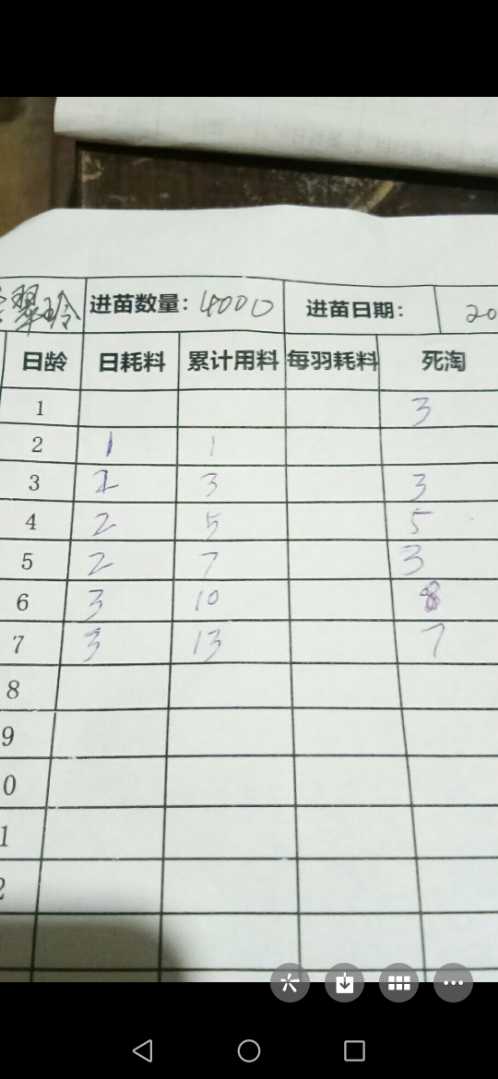 翠玲 进苗数量: 4000 进苗日期: 20
日龄 日耗料 累计用料 每羽耗料 死淘
1 3
2 1 1
3 2 3 3
4 2 5 5
5 2 7 3
6 3 10 8
7 3 13 7
8
9
0
1
2